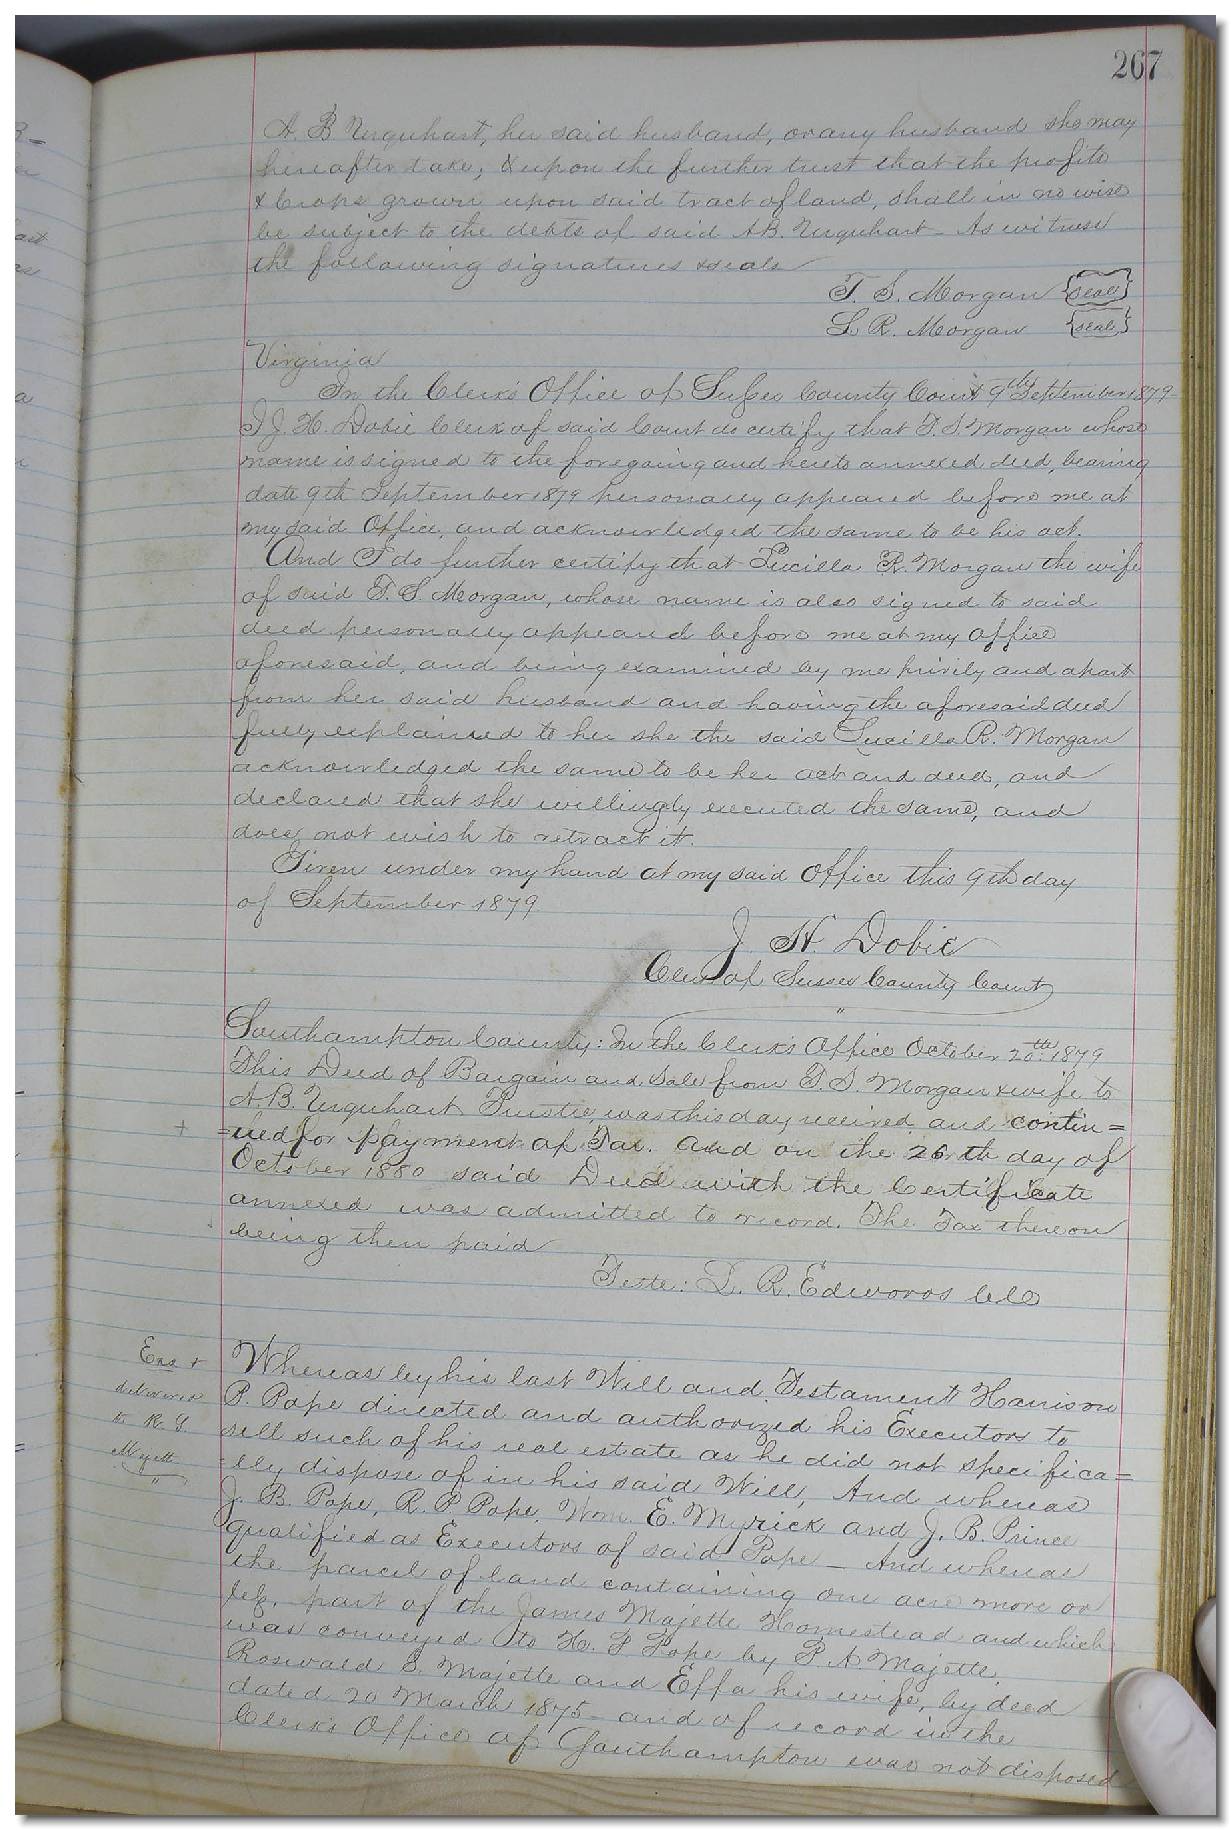 267
A. B Urquhart, her said husband, or any husband she may
hereafter take; & upon the further trust that the profits
& Crops grown upon said tract of land, shall in no wise
be subject to the debts of said A.B. Urquhart - As witness
the following signatures & seals
T. S. Morgan {seal}
L R. Morgan {seal}
Virginia
In the Clerk's Office of Sussex County Court 9th September 1879-
I J. H. Dobie Clerk of said Court do certify that T. S. Morgan whose
name is signed to the foregoing and hereto annexed deed, bearing
date 9th September 1879 personally appeared before me at
my said Office, and acknowledged the same to be his act.
And I do further certify that Lucilla R. Morgan the wife
of said T. S. Morgan, whose name is also signed to said
deed personally appeared before me at my office
aforesaid, and being examined by me privily and apart
from her said husband and having the aforesaid deed
fully explained to her she the said Lucilla R. Morgan
acknowledged the same to be her act and deed, and
declared that she willingly executed the same, and
does not wish to retract it.
Given under my hand at my said Office this 9th day
of September 1879
J. H. Dobie
Clerk of Sussex County Court
Southampton County: In the Clerk's Office October 20th 1879
This Deed of Bargain and Sale from T. S. Morgan & wife to
A. B. Urquhart Trustee, was this day received and contin=
=ued for payment of Tax. and on the 26th day of
October 1880 said Deed with the Certificate
annexed was admitted to record. The Tax thereon
being then paid
Teste: L. R. Edwards Clk
Exa &
delivered
to R. S.
Majett
"
Whereas by his last Will and Testament Harrison
P. Pope directed and authorized his Executors to
sell such of his real estate as he did not specifica=
-lly dispose of in his said Will, And whereas
J. B. Pope, R. P Pope, Wm. E. Myrick and J. B. Prince
qualified as Executors of said Pope - And whereas
the parcel of land containing one acre more or
less, part of the James Majette Homestead and which
was conveyed to H. P Pope by P. A. Majette,
Roswald S. Majette and Effa his wife, by deed
dated 20 March 1875 - and of record in the
Clerk's Office of Southampton was not disposed